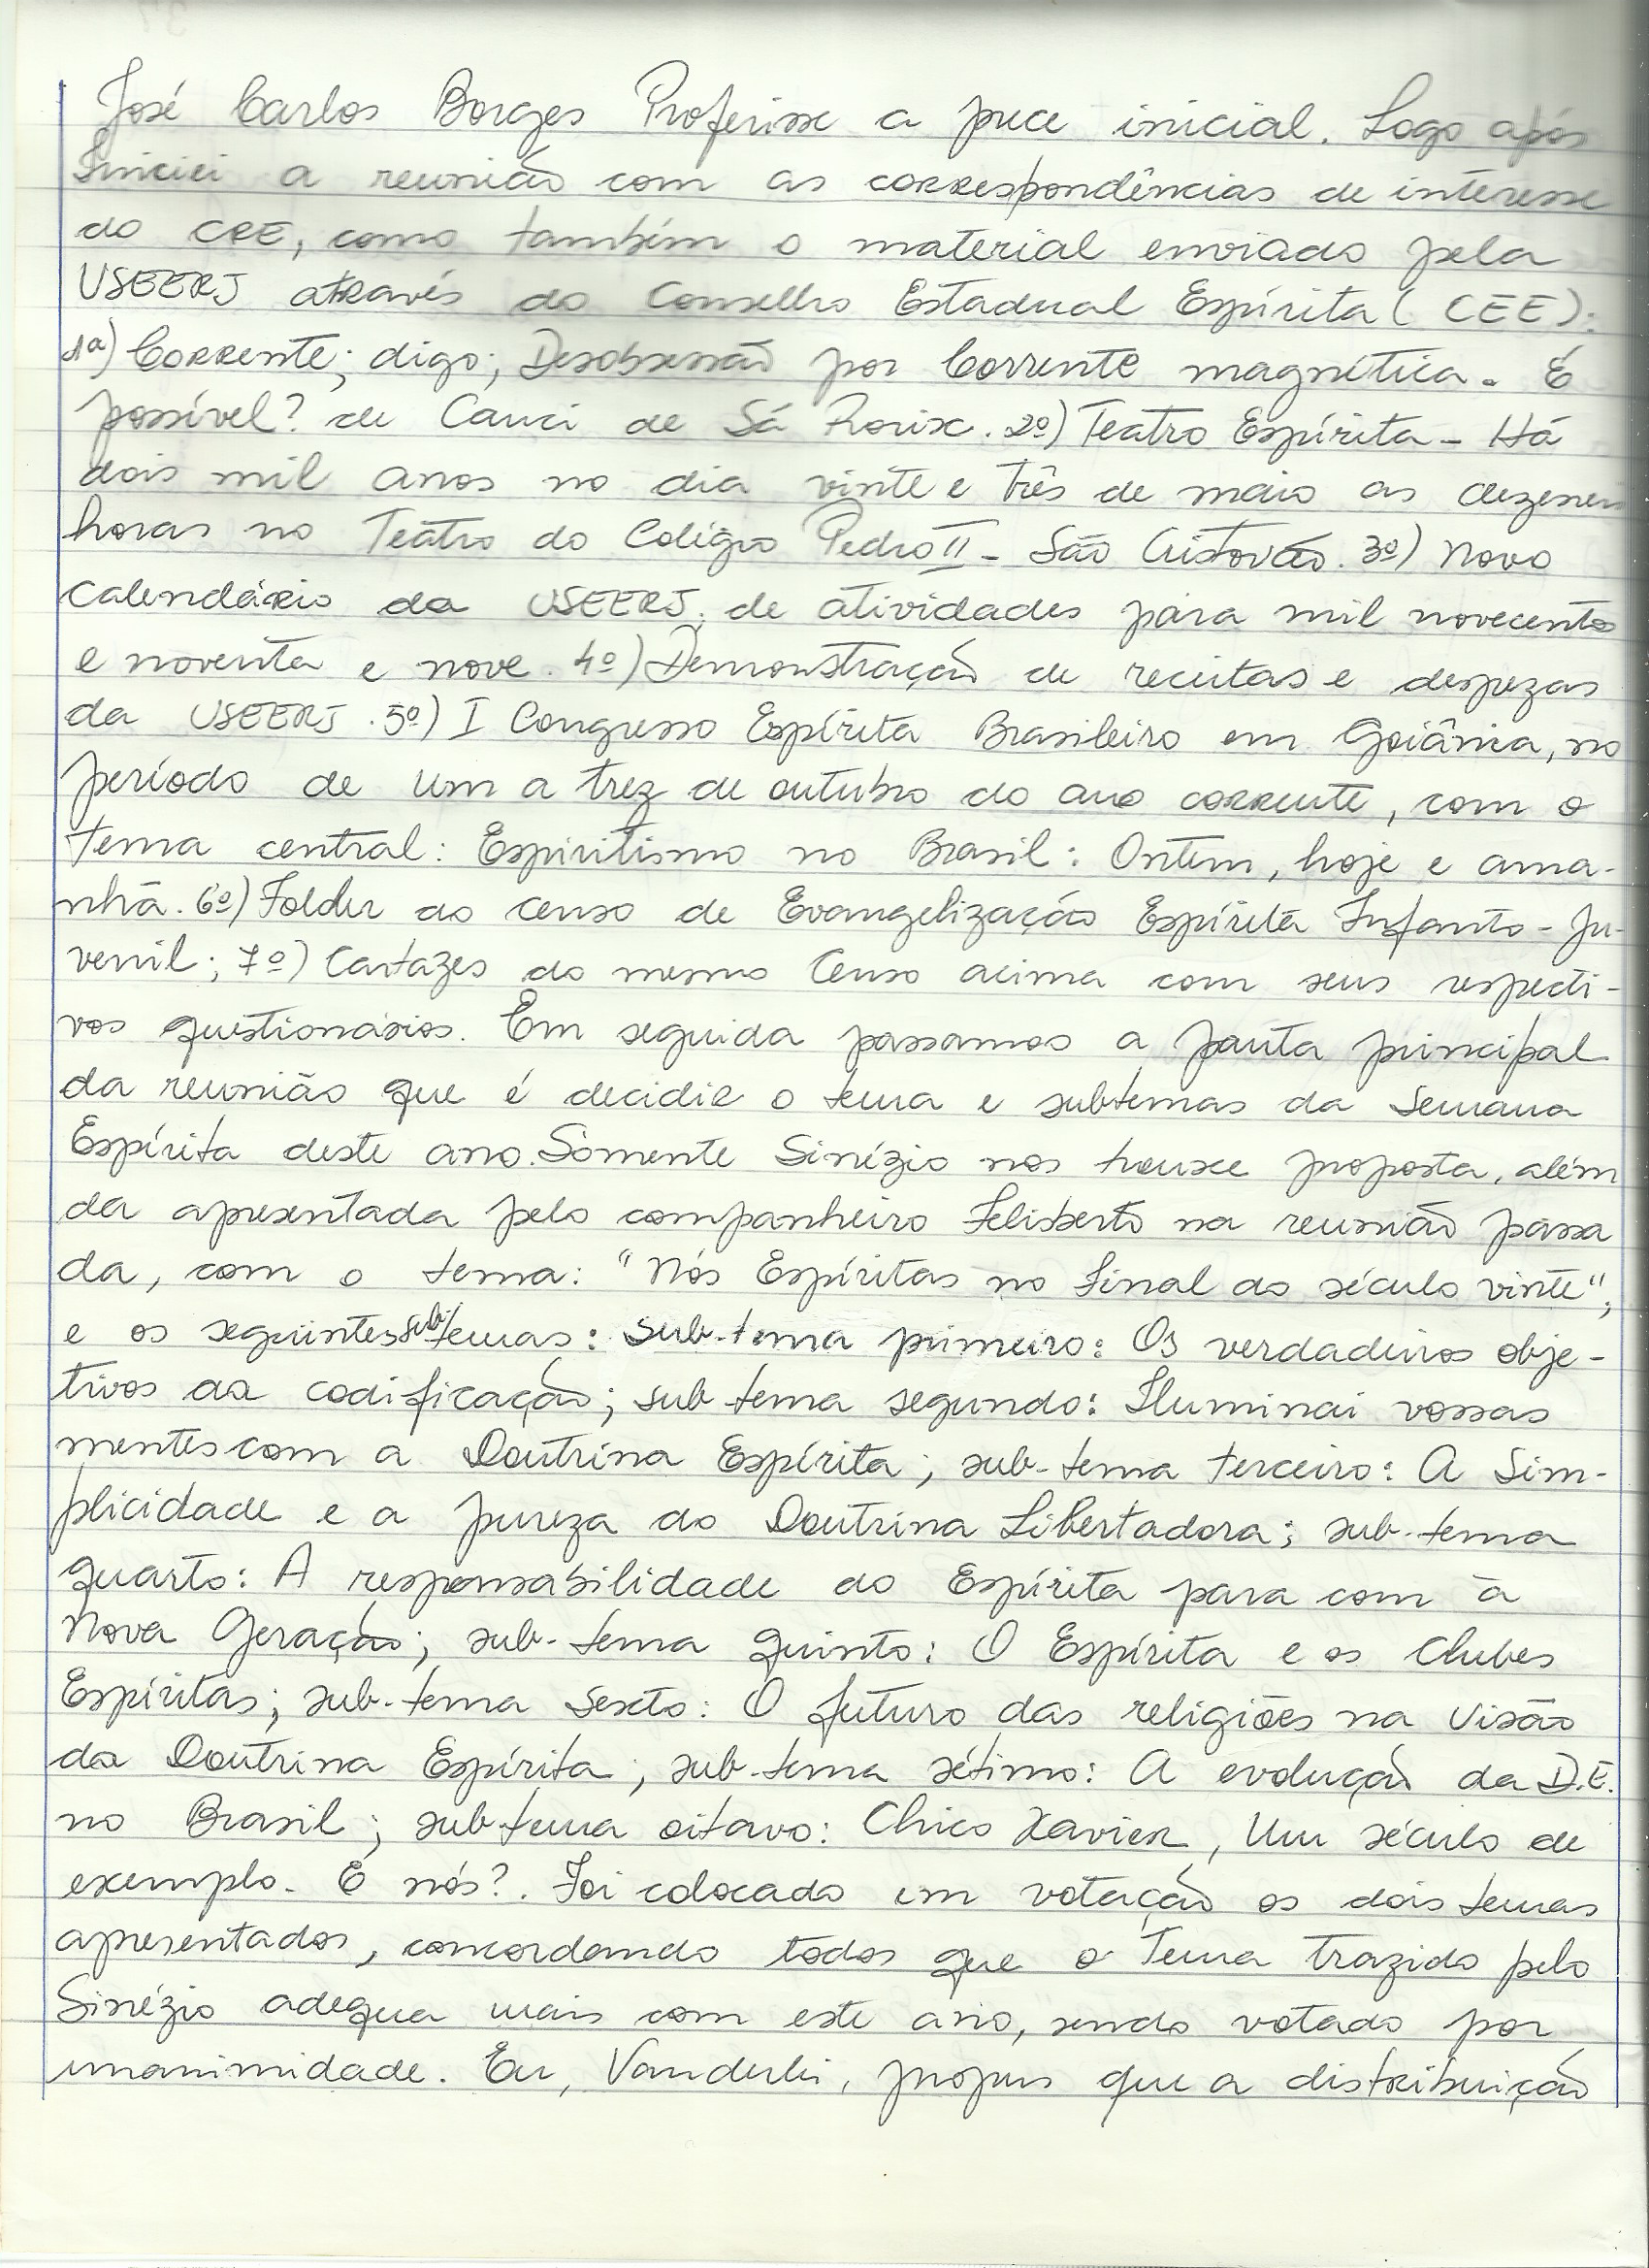 José Carlos Borges Proferisse a prece inicial. Logo após
Iniciei a reunião com as correspondências de interesse
do CRE, como também o material enviado pela
USEERJ através do Conselho Estadual Espírita (CEE):
1ª) Corrente; digo; Desobsessão por Corrente magnética. É
possível? de Cauci de Sá Rorix. 2º) Teatro Espírita - Há
dois mil anos no dia vinte e três de maio as dezenove
horas no Teatro do Colégio Pedro II - São Cristovão. 3º) Novo
Calendário da USEERJ. de atividades para mil novecentos
e noventa e nove. 4º) Demonstração de receitas e despezas
da USEERJ. 5º) I Congresso Espírita Brasileiro em Goiânia, no
período de um a trez de outubro do ano corrente, com o
tema central: Espiritismo no Brasil: Ontem, hoje e ama-
nhã. 6º) Folder do censo de Evangelização Espírita Infanto-Ju-
venil; 7º) Cartazes do mesmo Censo acima com seus respecti-
vos questionários. Em seguida passamos a pauta principal
da reunião que é decidir o tema e subtemas da Semana
Espírita deste ano. Somente Sinézio nos trouxe proposta, além
da apresentada pelo companheiro Felisberto na reunião passa
da, com o tema: "Nós Espíritas no Final do século vinte",
e os seguintes sub/temas: sub-tema primeiro: Os verdadeiros obje-
tivos da codificação; sub tema segundo: Iluminai vossas
mentes com a Doutrina Espírita; sub-tema terceiro: A Sim-
plicidade e a pureza da Doutrina Libertadora; sub-tema
quarto: A responsabilidade do Espírita para com à
Nova Geração; sub-tema quinto: O Espírita e os Clubes
Espíritas; sub-tema sexto: O futuro das religiões na Visão
da Doutrina Espírita; sub-tema sétimo: A evolução da D.E.
no Brasil; sub tema oitavo: Chico Xavier, Um século de
exemplo. E nós?. Foi colocado em votação os dois temas
apresentados, concordando todos que o Tema trazido pelo
Sinézio adequa mais com este ano, sendo votado por
unanimidade. Eu, Vanderlei, propus que a distribuição